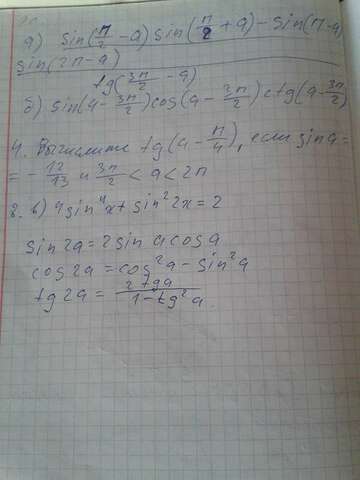 а) sin(π/2 - a) sin(π/2 + a) - sin(π - a)
sin(2π - a)
tg(3π/2 - a)
б) sin(a - 3π/2) cos(a - 3π/2) ctg(a - 3π/2)
4. Вычислите tg(a - π/4), если sin a =
= - 12/13 и 3π/2 < a < 2π
8. в) 4 sin⁴x + sin²2x = 2
sin2a = 2 sin a cos a
cos2a = cos²a - sin²a
tg2a = 2tga / 1 - tg²a